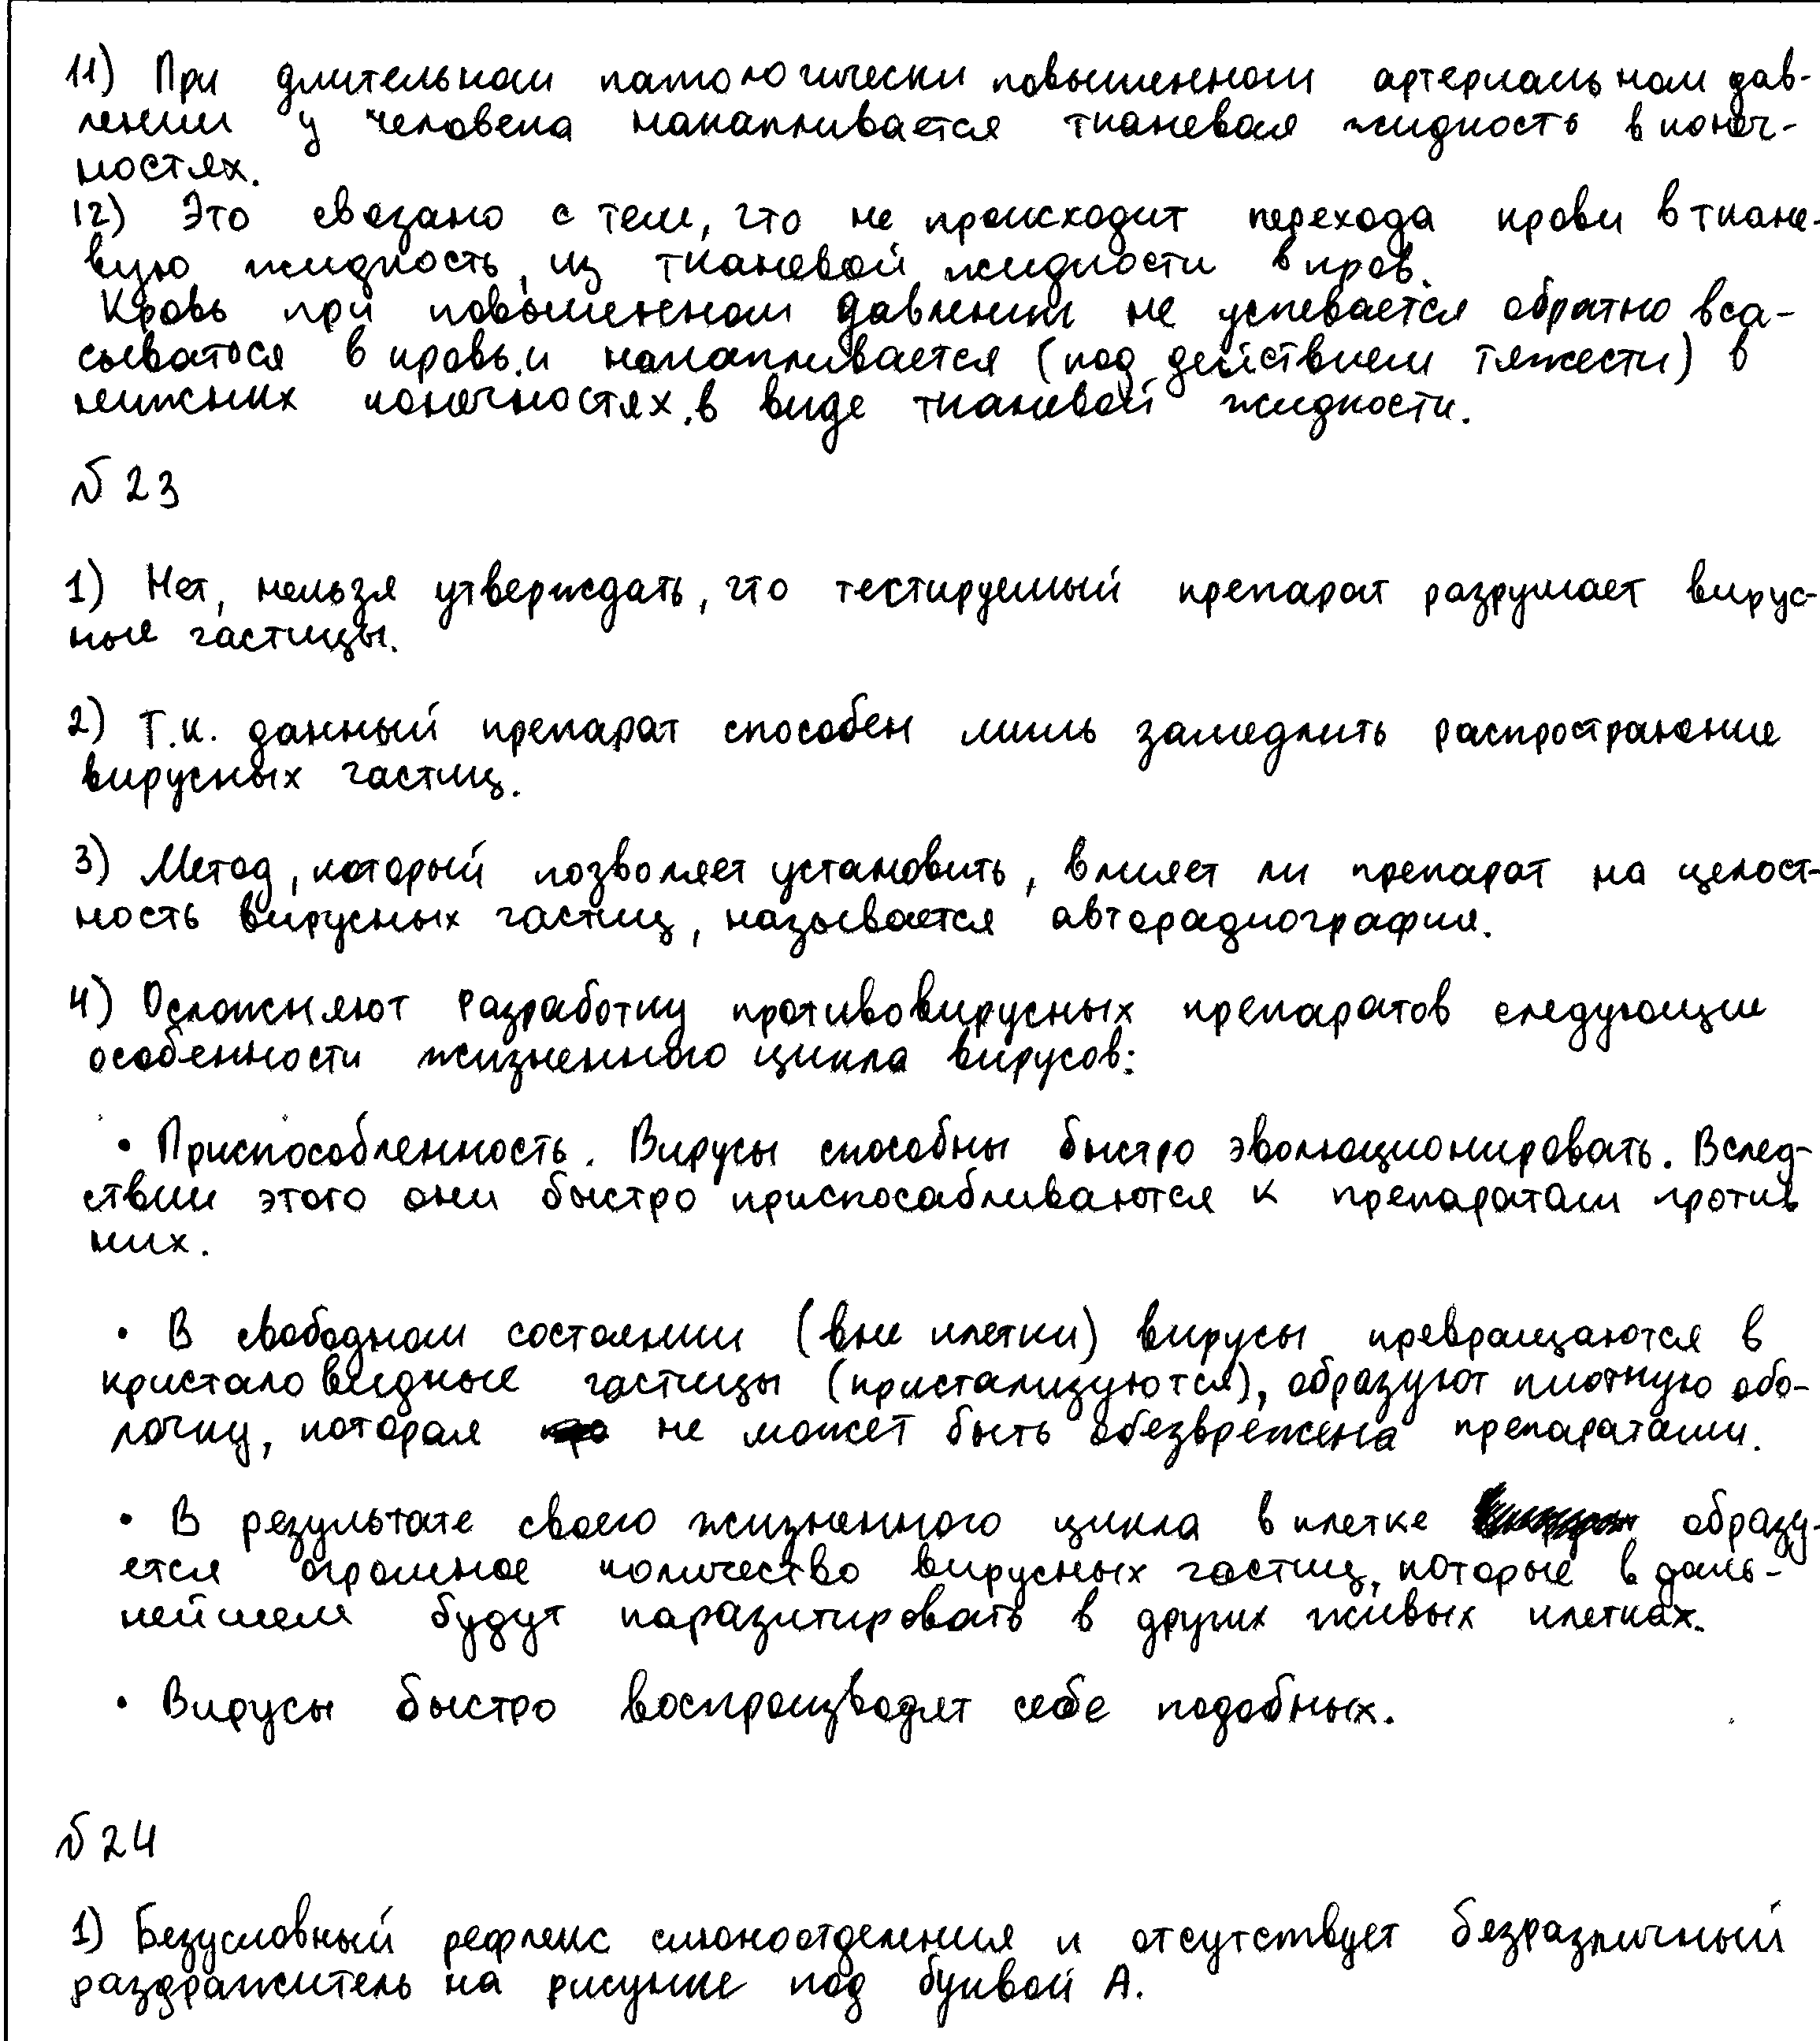 11) При длительном патологически повышенном артериальном дав-
лении у человека накапливается тканевая жидкость в конеч-
ностях.
12) Это связано с тем, что не происходит перехода крови в ткане-
вую жидкость, из тканевой жидкости в кровь.
Кровь при повышенном давлении не успевается обратно вса-
сываться в кровь и накапливается (под действием тяжести) в
нижних конечностях, в виде тканевой жидкости.
№ 23
1) Нет, нельзя утверждать, что тестируемый препарат разрушает вирус-
ные частицы.
2) Т.к. данный препарат способен лишь замедлить распространение
вирусных частиц.
3) Метод, который позволяет установить, влияет ли препарат на целост-
ность вирусных частиц, называется авторадиография.
4) Осложняют разработку противовирусных препаратов следующие
особенности жизненного цикла вирусов:
• Приспособленность. Вирусы способны быстро эволюционировать. Вслед-
ствии этого они быстро приспосабливаются к препаратам против
них.
• В свободном состоянии (вне клетки) вирусы превращаются в
кристаловидные частицы (кристализуются), образуют плотную обо-
лочку, которая не может быть обезврежена препаратами.
• В результате своего жизненного цикла в клетке образу-
ется огромное количество вирусных частиц, которые в даль-
нейшем будут паразитировать в других живых клетках.
• Вирусы быстро воспроизводят себе подобных.
№ 24
1) Безусловный рефлекс слюноотделения и отсутствует безразличный
раздражитель на рисунке под буквой А.